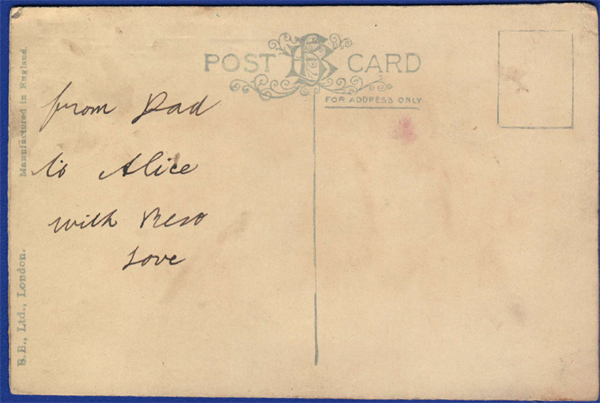 POST CARD
FOR ADDRESS ONLY
from Dad
to Alice
with
Love
B.B., Ltd., London.
Manufactured in England.